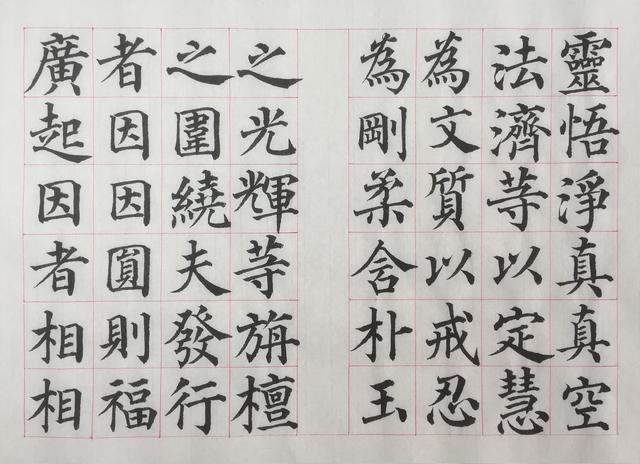 靈悟淨真真空
法濟等以定慧
為文質以戒忍
為剛柔含朴玉
之光輝等旃檀
之圍繞夫發行
者因因圓則福
廣起因者相相